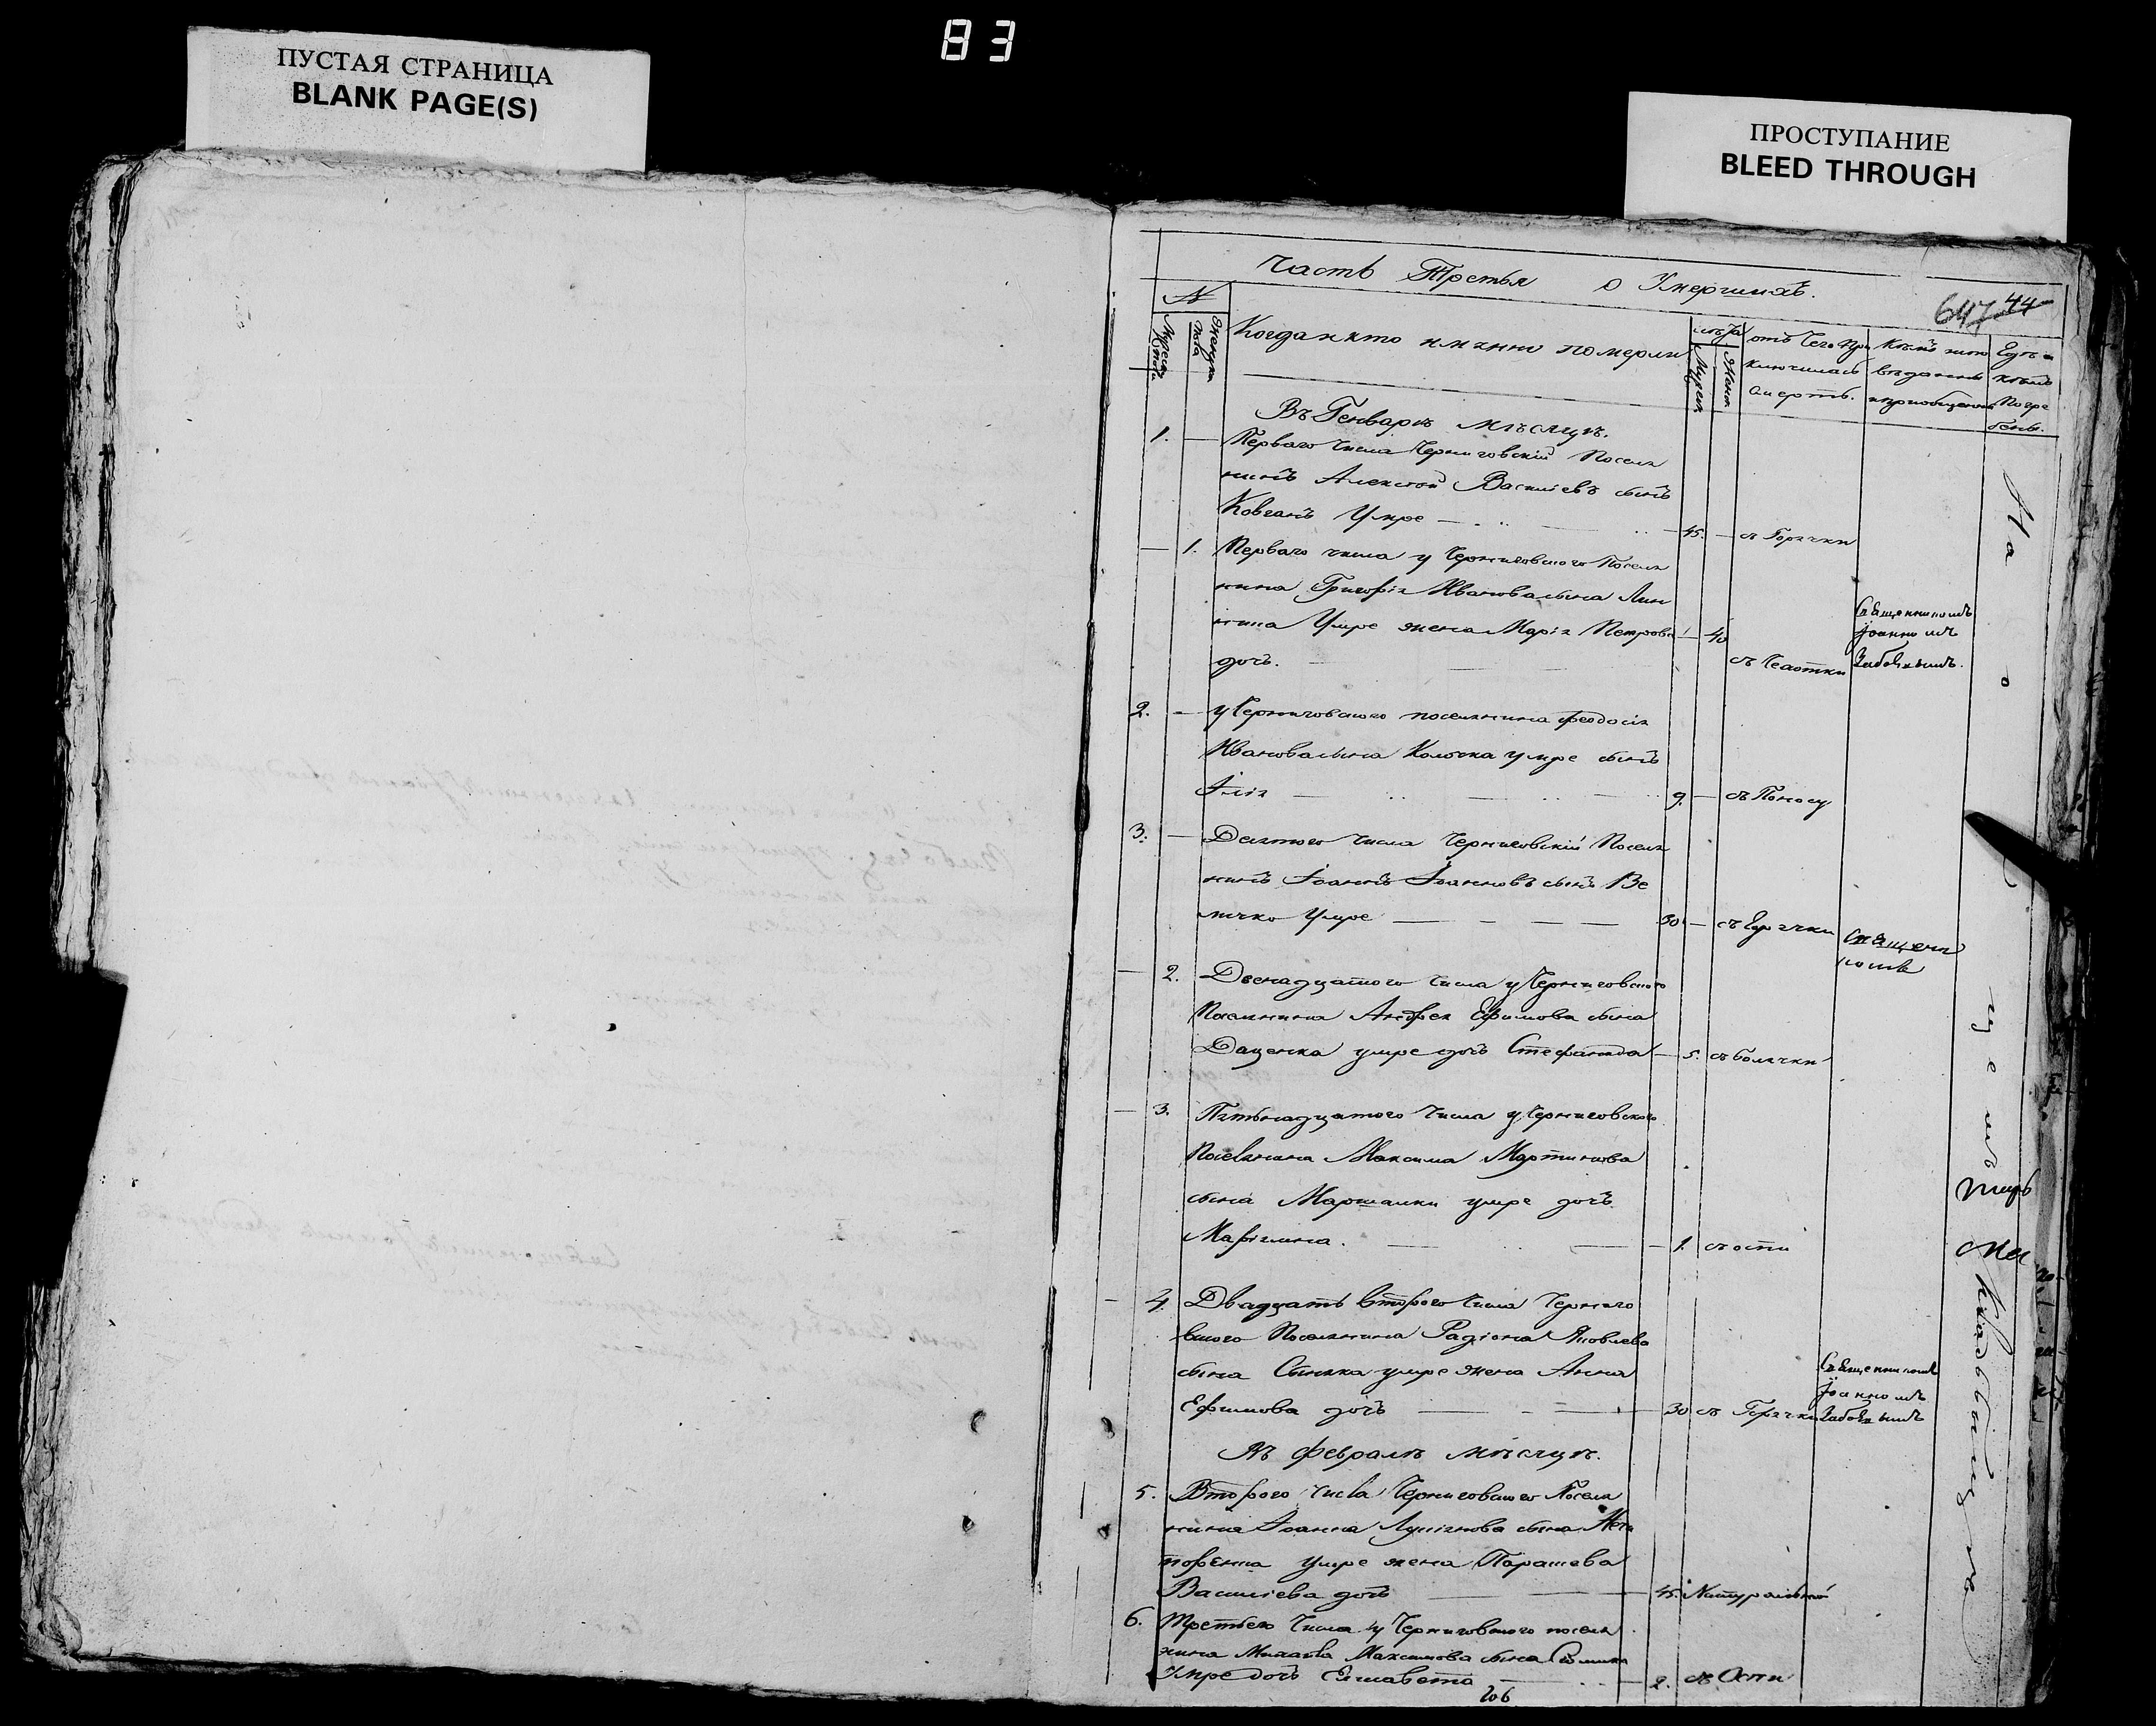 83
ПУСТАЯ СТРАНИЦА
BLANK PAGE(S)
ПРОСТУПАНИЕ
BLEED THROUGH
Часть Третья о Умершихъ.
647 44
№
Мужеска пола
Женска пола
Когда и кто имянно померли
лѣта
Мужеск
Женск
отъ Чего при
ключилась
смерть.
Кѣмъ испо
вѣданы
и приобщены
Гдѣ и
кѣмъ
Погре
бены.
Въ Генварѣ мѣсяцѣ.
1. — Перваго числа Черниговскій Поселя
нинъ Алексѣй Василіевъ сынъ
Умре — 45. — съ Горячки
— 1. Перваго числа у Черниговского Поселя
нина Григорія Иванова сына
Умре жена Марія Петрова — 40
дочь. съ Чахотки
Священникомъ
Іоанномъ
2. — у Черниговского поселянина Феодосія
Иванова сына умре сынъ
Илія — 9. — съ Поносу
3. — Десятого числа Черниговскій Поселя
нинъ Іоаннъ Іоанновъ сынъ Ве
личко Умре — 30 — съ Горячки
Священ
комъ
— 2. Двенадцатого числа у Черниговского
Поселянина Андрея Ефимова сына
Даценка умре дочь Стефанида — 5. съ болячки
— 3. Пятьнадцатого числа у Черниговского
Поселянина Максима Мартинова
сына умре дочь
— 1. съ оспи
— 4. Двадцать второго числа Черниго
вского Поселянина Радіона Яковлева
сына умре жена Анна
Ефимова дочь — 30 съ Горячки
Священникомъ
Іоанномъ
Въ февралѣ мѣсяцѣ.
5. Второго числа Черниговского Поселя
нина Іоанна сына
умре жена Парасева
Василіева дочь — 45. Натуральной
6. Третьего числа у Черниговского поселя
нина Михаила Максимова сына
Умре дочь Елисавета — 2. съ Оспи
На о
кладбищѣ